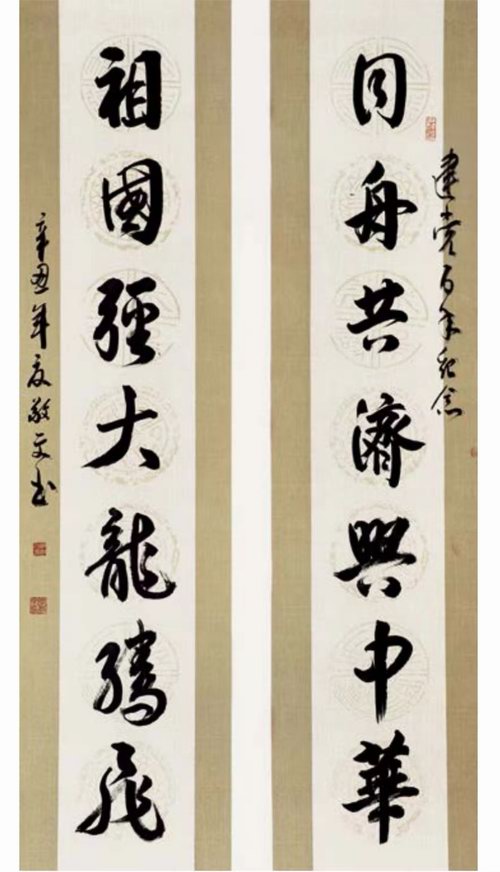 建党百年纪念
同舟共濟興中華
祖國強大龍騰飛
辛丑年夏敬文书